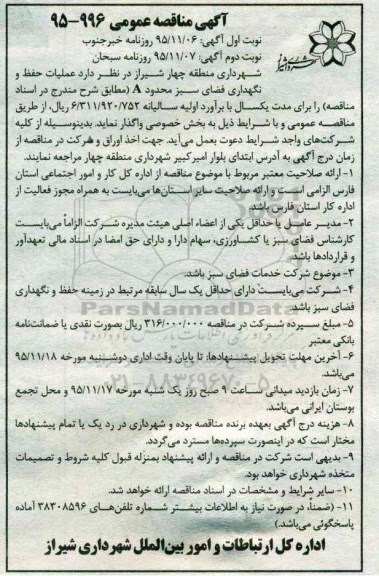 آگهی مناقصه عمومی ۹۹۶-۹۵
نوبت اول آگهی: ۹۵/۱۱/۰۶ روزنامه خبرجنوب
نوبت دوم آگهی: ۹۵/۱۱/۰۷ روزنامه سبحان
شهرداری منطقه چهار شیراز در نظر دارد عملیات حفظ و
نگهداری فضای سبز محدود A (مطابق شرح مندرج در اسناد
مناقصه) را برای مدت یکسال با برآورد اولیه سالیانه ۶/۳۱۱/۹۲۰/۷۵۲ ریال، از طریق
مناقصه عمومی و با شرایط ذیل به بخش خصوصی واگذار نماید. بدینوسیله از کلیه
شرکت‌های واجد شرایط دعوت بعمل می‌آید. جهت اخذ اوراق و شرکت در مناقصه از
زمان درج آگهی به آدرس ابتدای بلوار امیرکبیر شهرداری منطقه چهار مراجعه نمایند.
۱- ارائه صلاحیت معتبر مربوط با موضوع مناقصه از اداره کل کار و امور اجتماعی استان
فارس الزامی است و ارائه صلاحیت سایر استان‌ها می‌بایست به همراه مجوز فعالیت از
اداره کار استان فارس باشد.
۲- مدیر عامل یا حداقل یکی از اعضاء اصلی هیئت مدیره شرکت الزاماً می‌بایست
کارشناس فضای سبز یا کشاورزی، سهام دارا و دارای حق امضا در اسناد مالی تعهدآور
و قراردادها باشد.
۳- موضوع شرکت خدمات فضای سبز باشد.
۴- شرکت می‌بایست دارای حداقل یک سال سابقه مرتبط در زمینه حفظ و نگهداری
فضای سبز باشد.
۵- مبلغ سپرده شرکت در مناقصه ۳۱۶/۰۰۰/۰۰۰ ریال بصورت نقدی یا ضمانت‌نامه
بانکی معتبر
۶- آخرین مهلت تحویل پیشنهادها: تا پایان وقت اداری دوشنبه مورخه ۹۵/۱۱/۱۸
می‌باشد.
۷- زمان بازدید میدانی ساعت ۹ صبح روز یک شنبه مورخه ۹۵/۱۱/۱۷ و محل تجمع
بوستان ایرانی می‌باشد.
۸- هزینه درج آگهی بعهده برنده مناقصه بوده و شهرداری در رد یک یا تمام پیشنهادها
مختار است که در اینصورت سپرده‌ها مسترد می‌گردد.
۹- بدیهی است شرکت در مناقصه و ارائه پیشنهاد بمنزله قبول کلیه شروط و تصمیمات
متخذه شهرداری خواهد بود.
۱۰- سایر شرایط و مشخصات در اسناد مناقصه ارائه خواهد شد.
۱۱- (ضمناً، در صورت نیاز به اطلاعات بیشتر شماره تلفن‌های ۳۸۳۰۸۵۹۶ آماده
پاسخگوئی می‌باشد.)
اداره کل ارتباطات و امور بین‌الملل شهرداری شیراز
ParsNamadData
۰۲۱-۸۸۳۴۹۶۷۰-۵